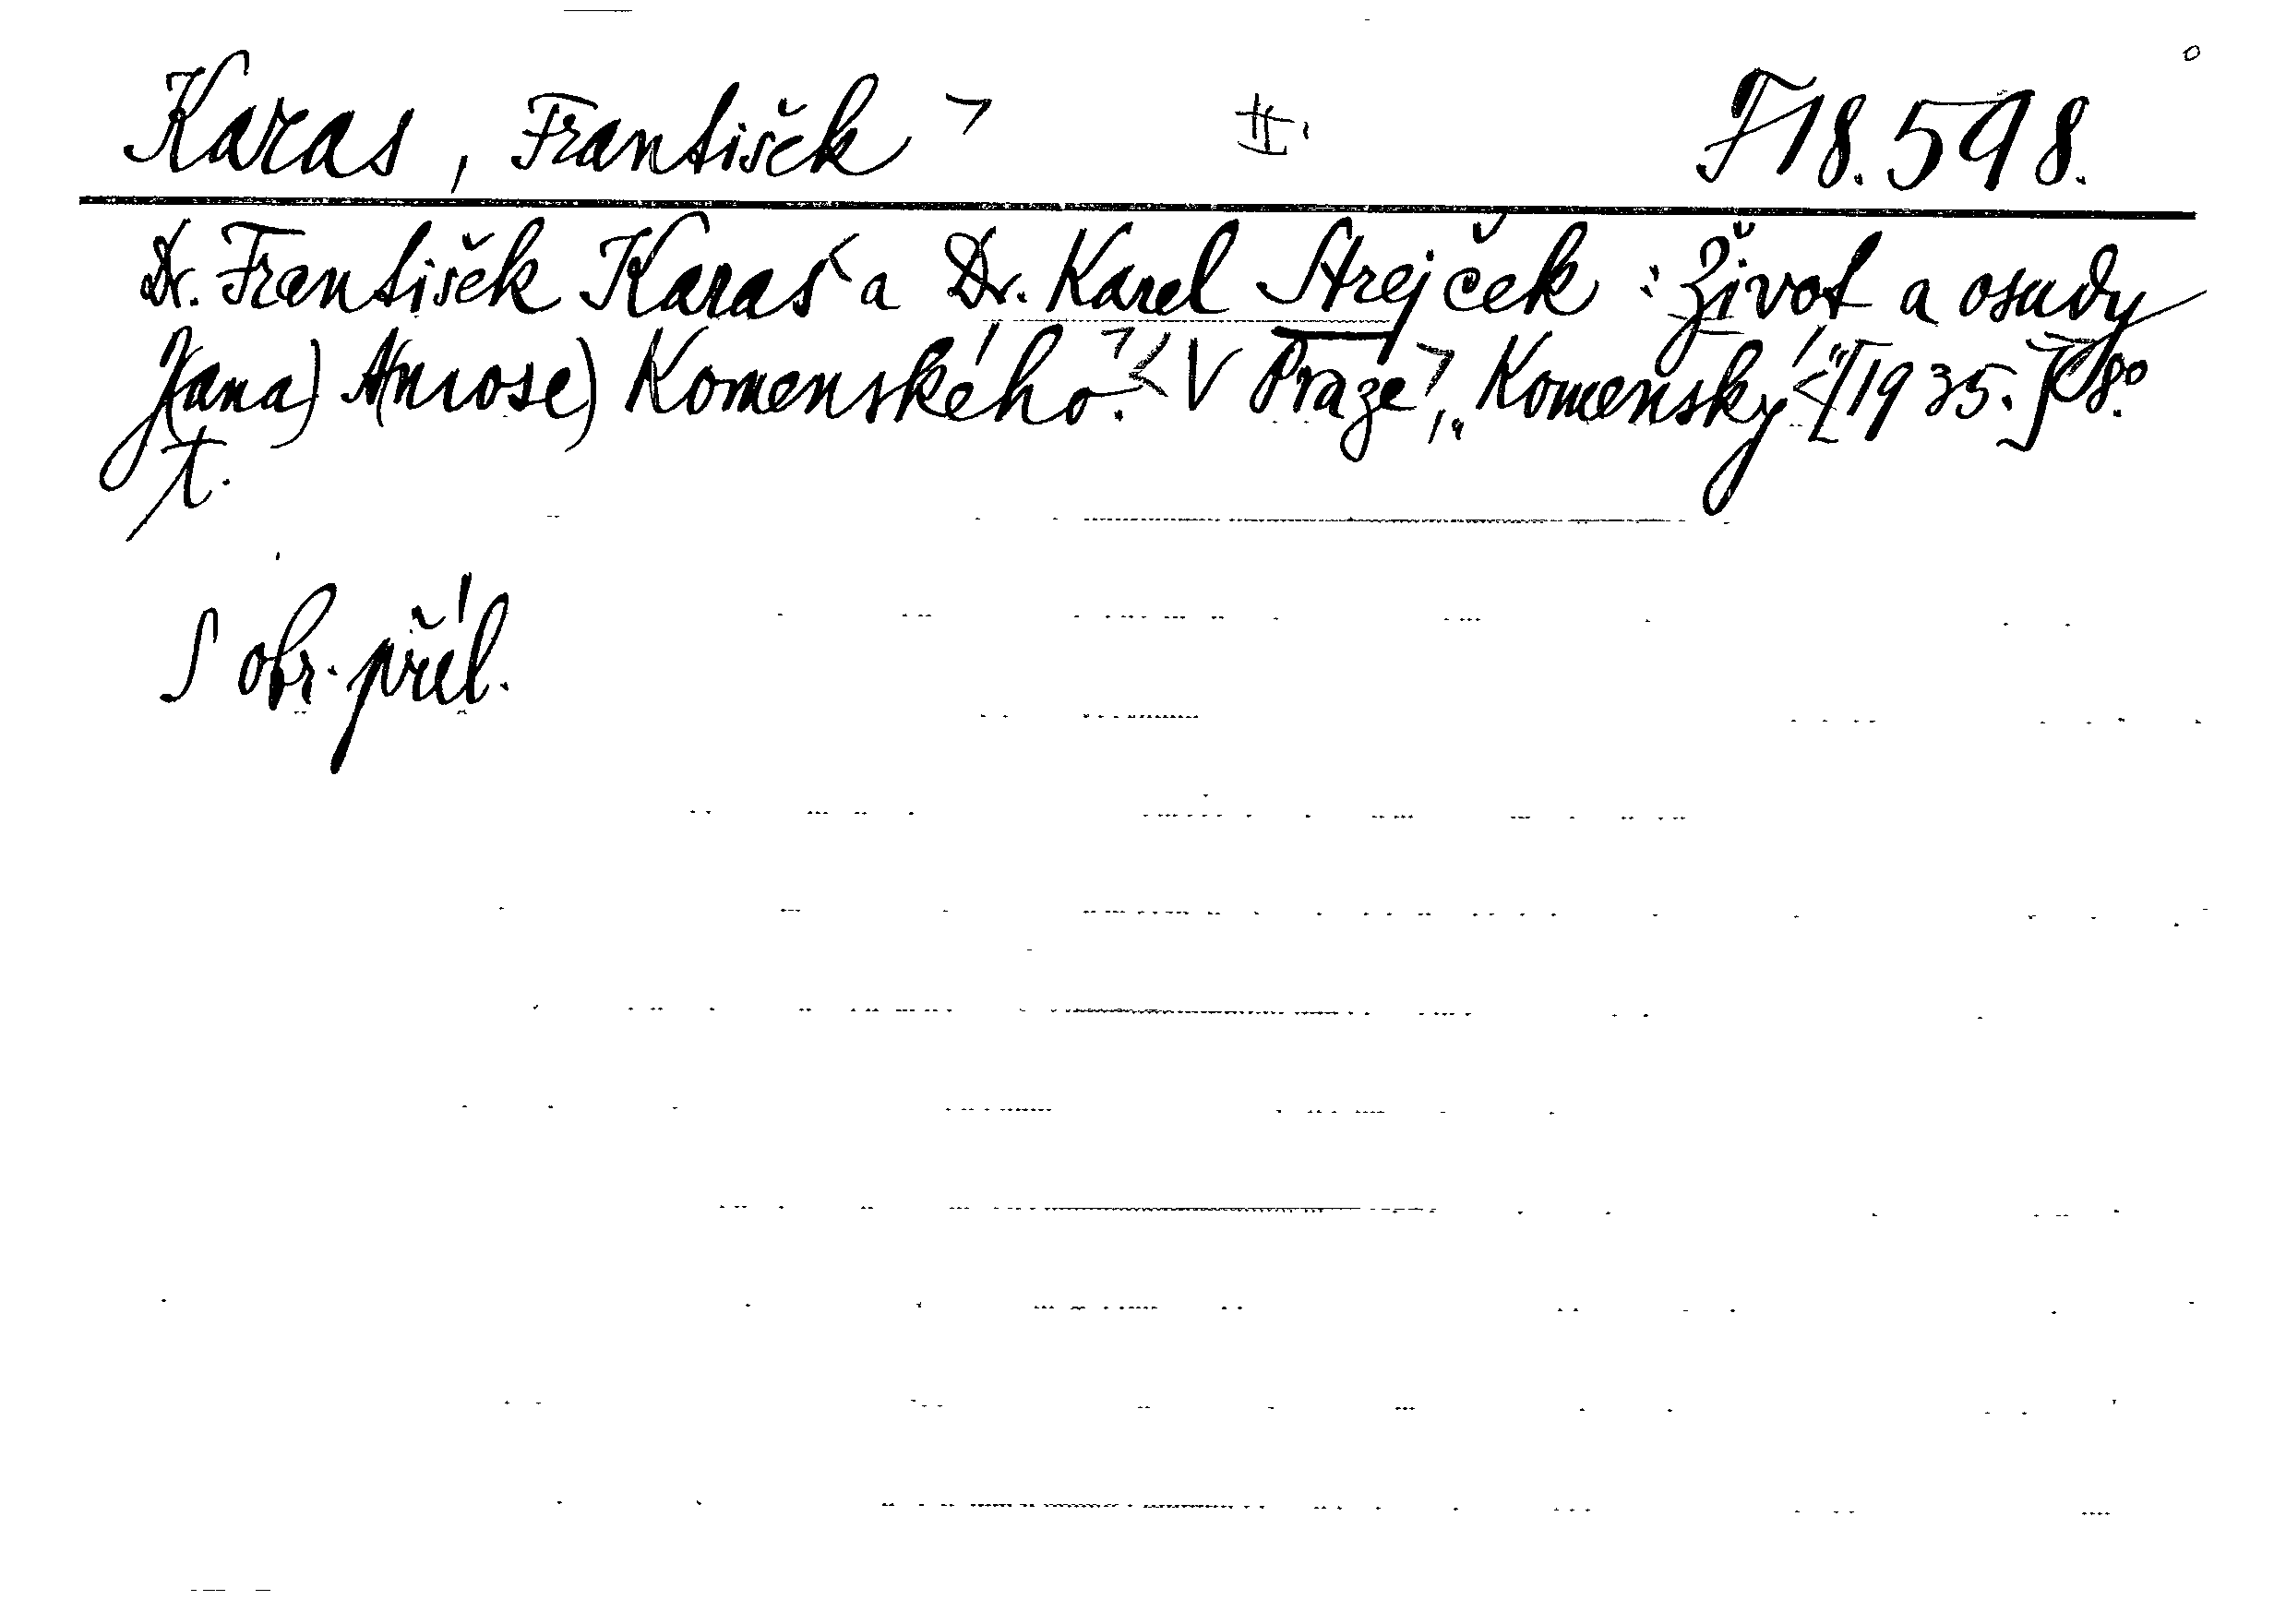 Karas, František II. F 18.598.
Dr. František Karas a Dr. Karel Strejček: Život a osudy
J(ana) A(mose) Komenského. V Praze, „Komenský“ [1935.] 8°.
S obr. příl.